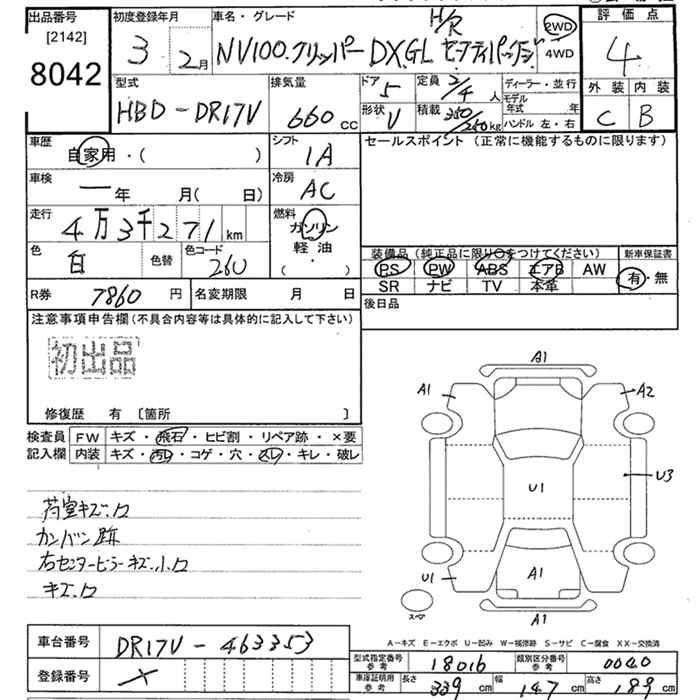 出品番号 [2142] 8042
初度登録年月 3 2月
車名・グレード H/R
NV100.クリッパー DX,GL セーフティパッケージ
2WD 4WD
評価点 4
外装 内装
C B
型式 HBD-DR17V
排気量 660cc
ドア 5
形状 V
定員 2/4人
積載 350/250kg
ディーラー・並行
モデル年式 年
ハンドル 左・右
車歴 自家用・( )
シフト 1A
セールスポイント(正常に機能するものに限ります)
車検 ー年 月( 日)
冷房 AC
走行 4万3千271km
燃料 ガソリン 軽油 ( ・ )
色 白 色替 色コード 26U
装備品(純正品に限り○をつけてください) 新車保証書
PS PW ABS エアB AW 有・無
SR ナビ TV 本革
R券 7860円 名変期限 月 日
後日品
注意事項申告欄(不具合内容等は具体的に記入して下さい)
初出品
修復歴 有 [箇所 ]
検査員 FW キズ・飛石・ヒビ割・リペア跡・×要
記入欄 内装 キズ・汚レ・コゲ・穴・スレ・キレ・破レ
荷室キズ.ロ
カンバン跡
右センターピラーキズ.小.ロ
キズ.ロ
A1
A1 A2
U1 U3
U1 A1
スペア A1
A-キズ E-エクボ U-凹み W-補修跡 S-サビ C-腐食 XX-交換済
車台番号 DR17V-463353
登録番号
型式指定番号 参考 18016 類別区分番号 参考 0040
車庫証明用 参考 長さ 339cm 幅 147cm 高さ 189cm